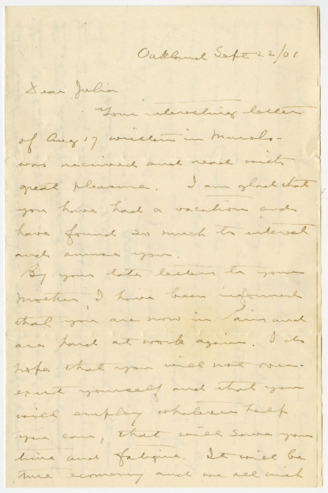 Oakland Sept 22/01
Dear Julia
Your interesting letter
of Aug 17 written in
was received and read with
great pleasure. I am glad that
you have had a vacation and
have found so much to interest
and amuse you.
By your late letters to your
mother, I have been informed
that you are now in Paris and
are hard at work again. I do
hope that you will not over-
exert yourself and that you
will employ whatever help
you can, that will save you
time and fatigue. It will be
true economy and we all wish